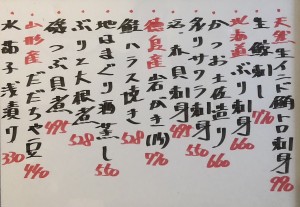 天然生インド鮪トロ刺身 990
生鯨刺し 770
北海道ぶり刺身 660
かつお土佐造り 660
サクラ刺身
貝刺身 495
徳島産岩がき 770
鮭ハラス焼き 528
ぶりと大根煮 528
地はまぐり酒蒸し 550
磯つぶ貝煮 495
山形産だだちゃ豆 440
水茄子浅漬り 330